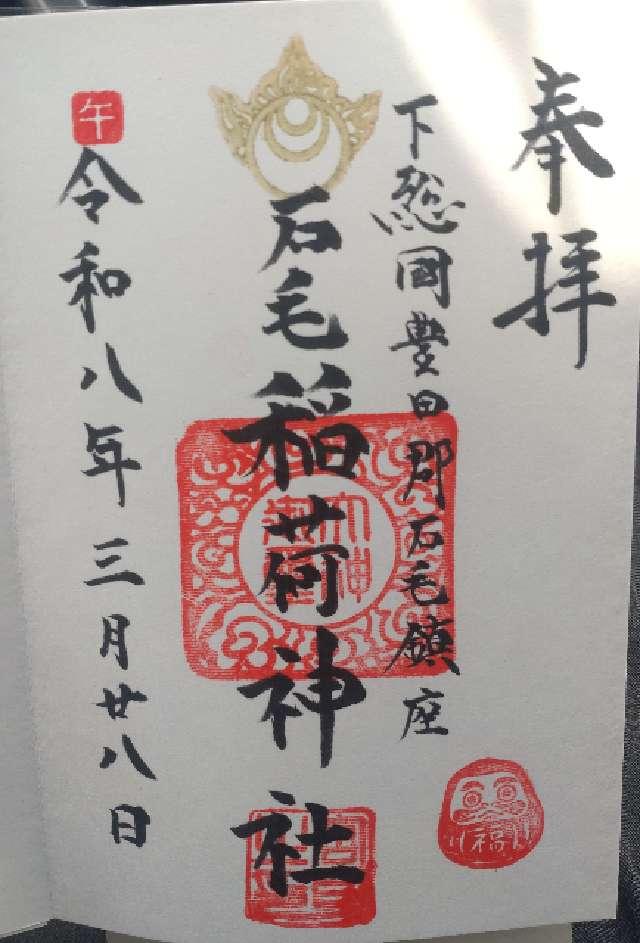 奉拝
下総國豊田郡石毛鎮座
石毛稲荷神社
午
令和八年三月廿八日
福